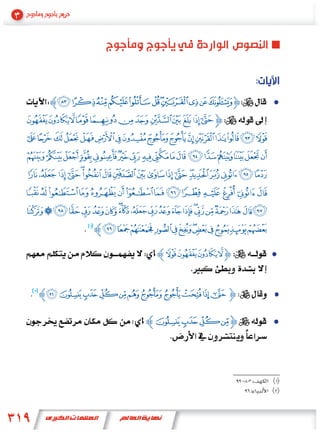 خروج يأجوج ومأجوج
٣
النصوص الواردة في يأجوج ومأجوج
الآيات:
قال ﷻ: ﴿ وَيَسْـَٔلُونَكَ عَن ذِى ٱلْقَرْنَيْنِ قُلْ سَأَتْلُوا۟ عَلَيْكُم مِّنْهُ ذِكْرًا ﴿٨٣﴾ ﴾ :الآيات
إلى قوله ﷻ: ﴿ حَتَّىٰٓ إِذَا بَلَغَ بَيْنَ ٱلسَّدَّيْنِ وَجَدَ مِن دُونِهِمَا قَوْمًا لَّا يَكَادُونَ يَفْقَهُونَ
قَوْلًا ﴿٩٣﴾ قَالُوا۟ يَٰذَا ٱلْقَرْنَيْنِ إِنَّ يَأْجُوجَ وَمَأْجُوجَ مُفْسِدُونَ فِى ٱلْأَرْضِ فَهَلْ نَجْعَلُ لَكَ خَرْجًا عَلَىٰٓ
أَن تَجْعَلَ بَيْنَنَا وَبَيْنَهُمْ سَدًّا ﴿٩٤﴾ قَالَ مَا مَكَّنِّى فِيهِ رَبِّى خَيْرٌ فَأَعِينُونِى بِقُوَّةٍ أَجْعَلْ بَيْنَكُمْ وَبَيْنَهُمْ
رَدْمًا ﴿٩٥﴾ ءَاتُونِى زُبَرَ ٱلْحَدِيدِ حَتَّىٰٓ إِذَا سَاوَىٰ بَيْنَ ٱلصَّدَفَيْنِ قَالَ ٱنفُخُوا۟ حَتَّىٰٓ إِذَا جَعَلَهُۥ نَارًا
قَالَ ءَاتُونِىٓ أُفْرِغْ عَلَيْهِ قِطْرًا ﴿٩٦﴾ فَمَا ٱسْطَٰعُوٓا۟ أَن يَظْهَرُوهُ وَمَا ٱسْتَطَٰعُوا۟ لَهُۥ نَقْبًا
﴿٩٧﴾ قَالَ هَٰذَا رَحْمَةٌ مِّن رَّبِّى فَإِذَا جَآءَ وَعْدُ رَبِّى جَعَلَهُۥ دَكَّآءَ وَكَانَ وَعْدُ رَبِّى حَقًّا ﴿٩٨﴾ وَتَرَكْنَا
بَعْضَهُمْ يَوْمَئِذٍ يَمُوجُ فِى بَعْضٍ وَنُفِخَ فِى ٱلصُّورِ فَجَمَعْنَٰهُمْ جَمْعًا ﴿٩٩﴾ ﴾ (١).
قوله ﷻ: ﴿ لَّا يَكَادُونَ يَفْقَهُونَ قَوْلًا ﴾ أي: لا يفهمون كلام من يتكلم معهم
إلا بشدة وبطئ كبير.
وقال ﷻ: ﴿ حَتَّىٰٓ إِذَا فُتِحَتْ يَأْجُوجُ وَمَأْجُوجُ وَهُم مِّن كُلِّ حَدَبٍ يَنسِلُونَ ﴿٩٦﴾ ﴾ (٢).
قوله ﷻ: ﴿ مِّن كُلِّ حَدَبٍ يَنسِلُونَ ﴾ أي: من كل مكان مرتفع يخرجون
سراعاً وينتشرون في الأرض.
(١) الكهف: ٨٣-٩٩
(٢) الأنبياء: ٩٦
٣١٩ العلامات الكبرى نهاية العالم